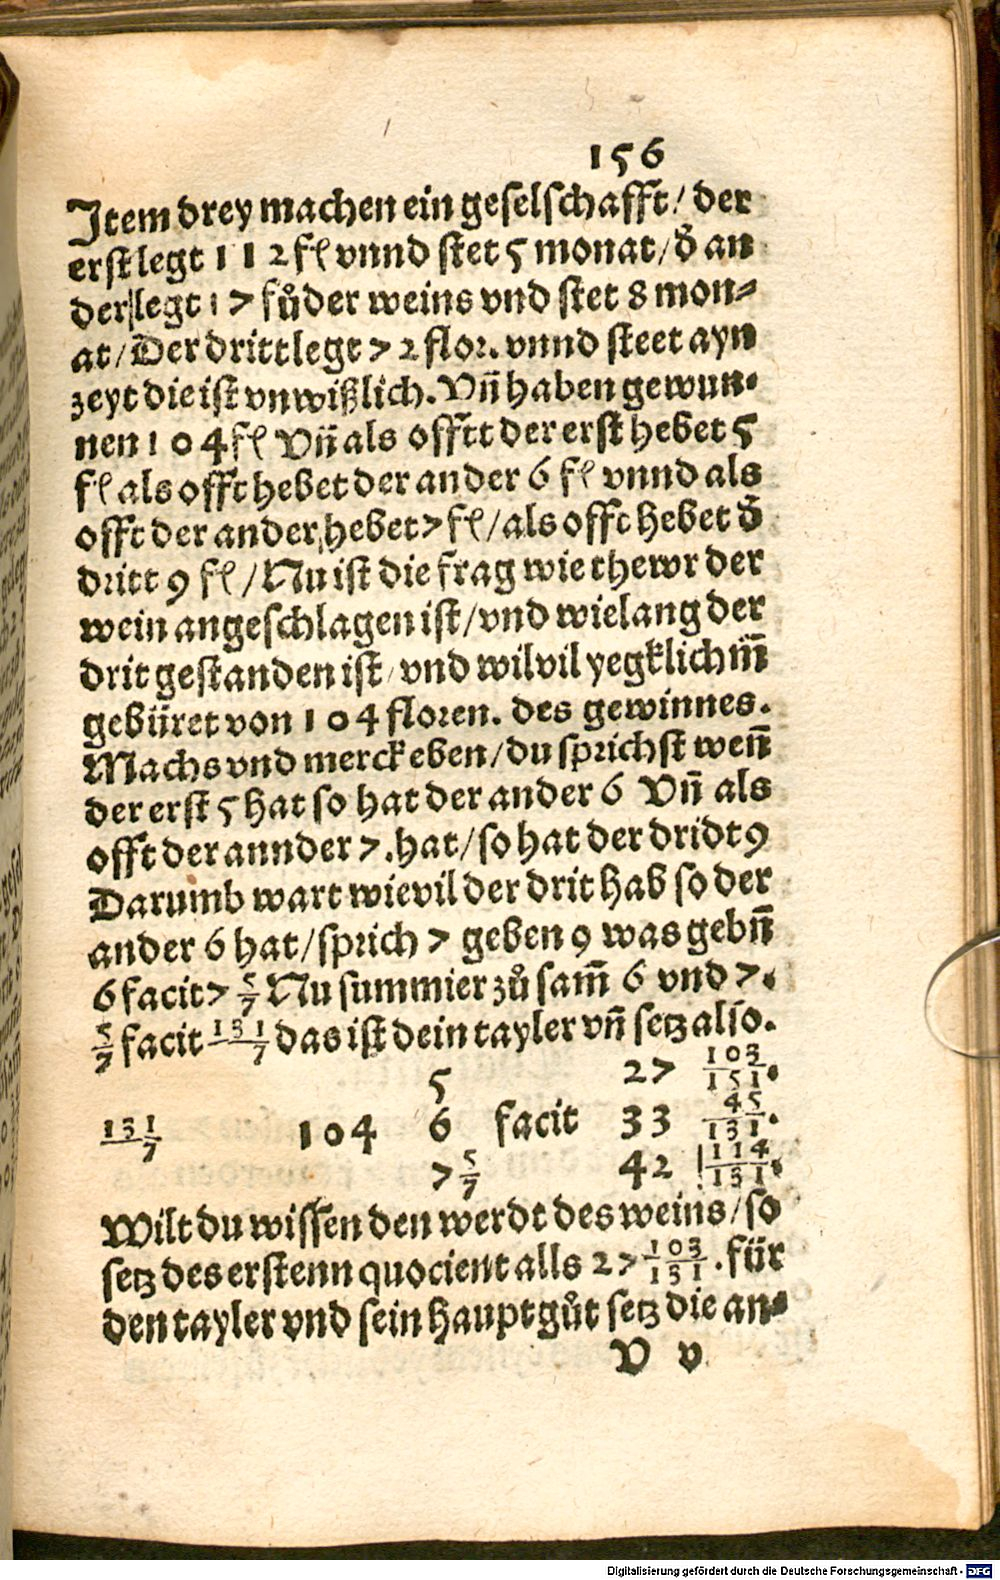 156
Jtem drey machen ein geselschafft / der
erst legt 112 fl vnnd stet 5 monat / d̄ an
der legt 17 fůder weins vnd stet 8 mon⸗
at / Der dritt legt 72 flor. vnnd steet ayn
zeyt die ist vnwißlich. Vñ haben gewun⸗
nen 104 fl Vñ als offtt der erst hebet 5
fl als offt hebet der ander 6 fl vnnd als
offt der ander hebet 7 fl / als offt hebet d̄
dritt 9 fl / Nu ist die frag wie thewr der
wein angeschlagen ist / vnd wielang der
drit gestanden ist / vnd wilvil yegklichm̄
gebüret von 104 floren. des gewinnes.
Machs vnd merck eben / du sprichst weñ
der erst 5 hat so hat der ander 6 Vñ als
offt der annder 7. hat / so hat der dridt 9
Darumb wart wievil der drit hab so der
ander 6 hat / sprich 7 geben 9 was gebñ
6 facit 7 5/7 Nu summier zů sam̄ 6 vnd 7.
5/7 facit 131/7 das ist dein tayler vñ setz also.
5 27 103/151.
131/7 104 6 facit 33 45/131.
7 5/7 42 114/131.
Wilt du wissen den werdt des weins / so
setz des erstenn quocient alls 27 103/131. für
den tayler vnd sein hauptgůt setz die an⸗
V v
Digitalisierung gefördert durch die Deutsche Forschungsgemeinschaft - DFG